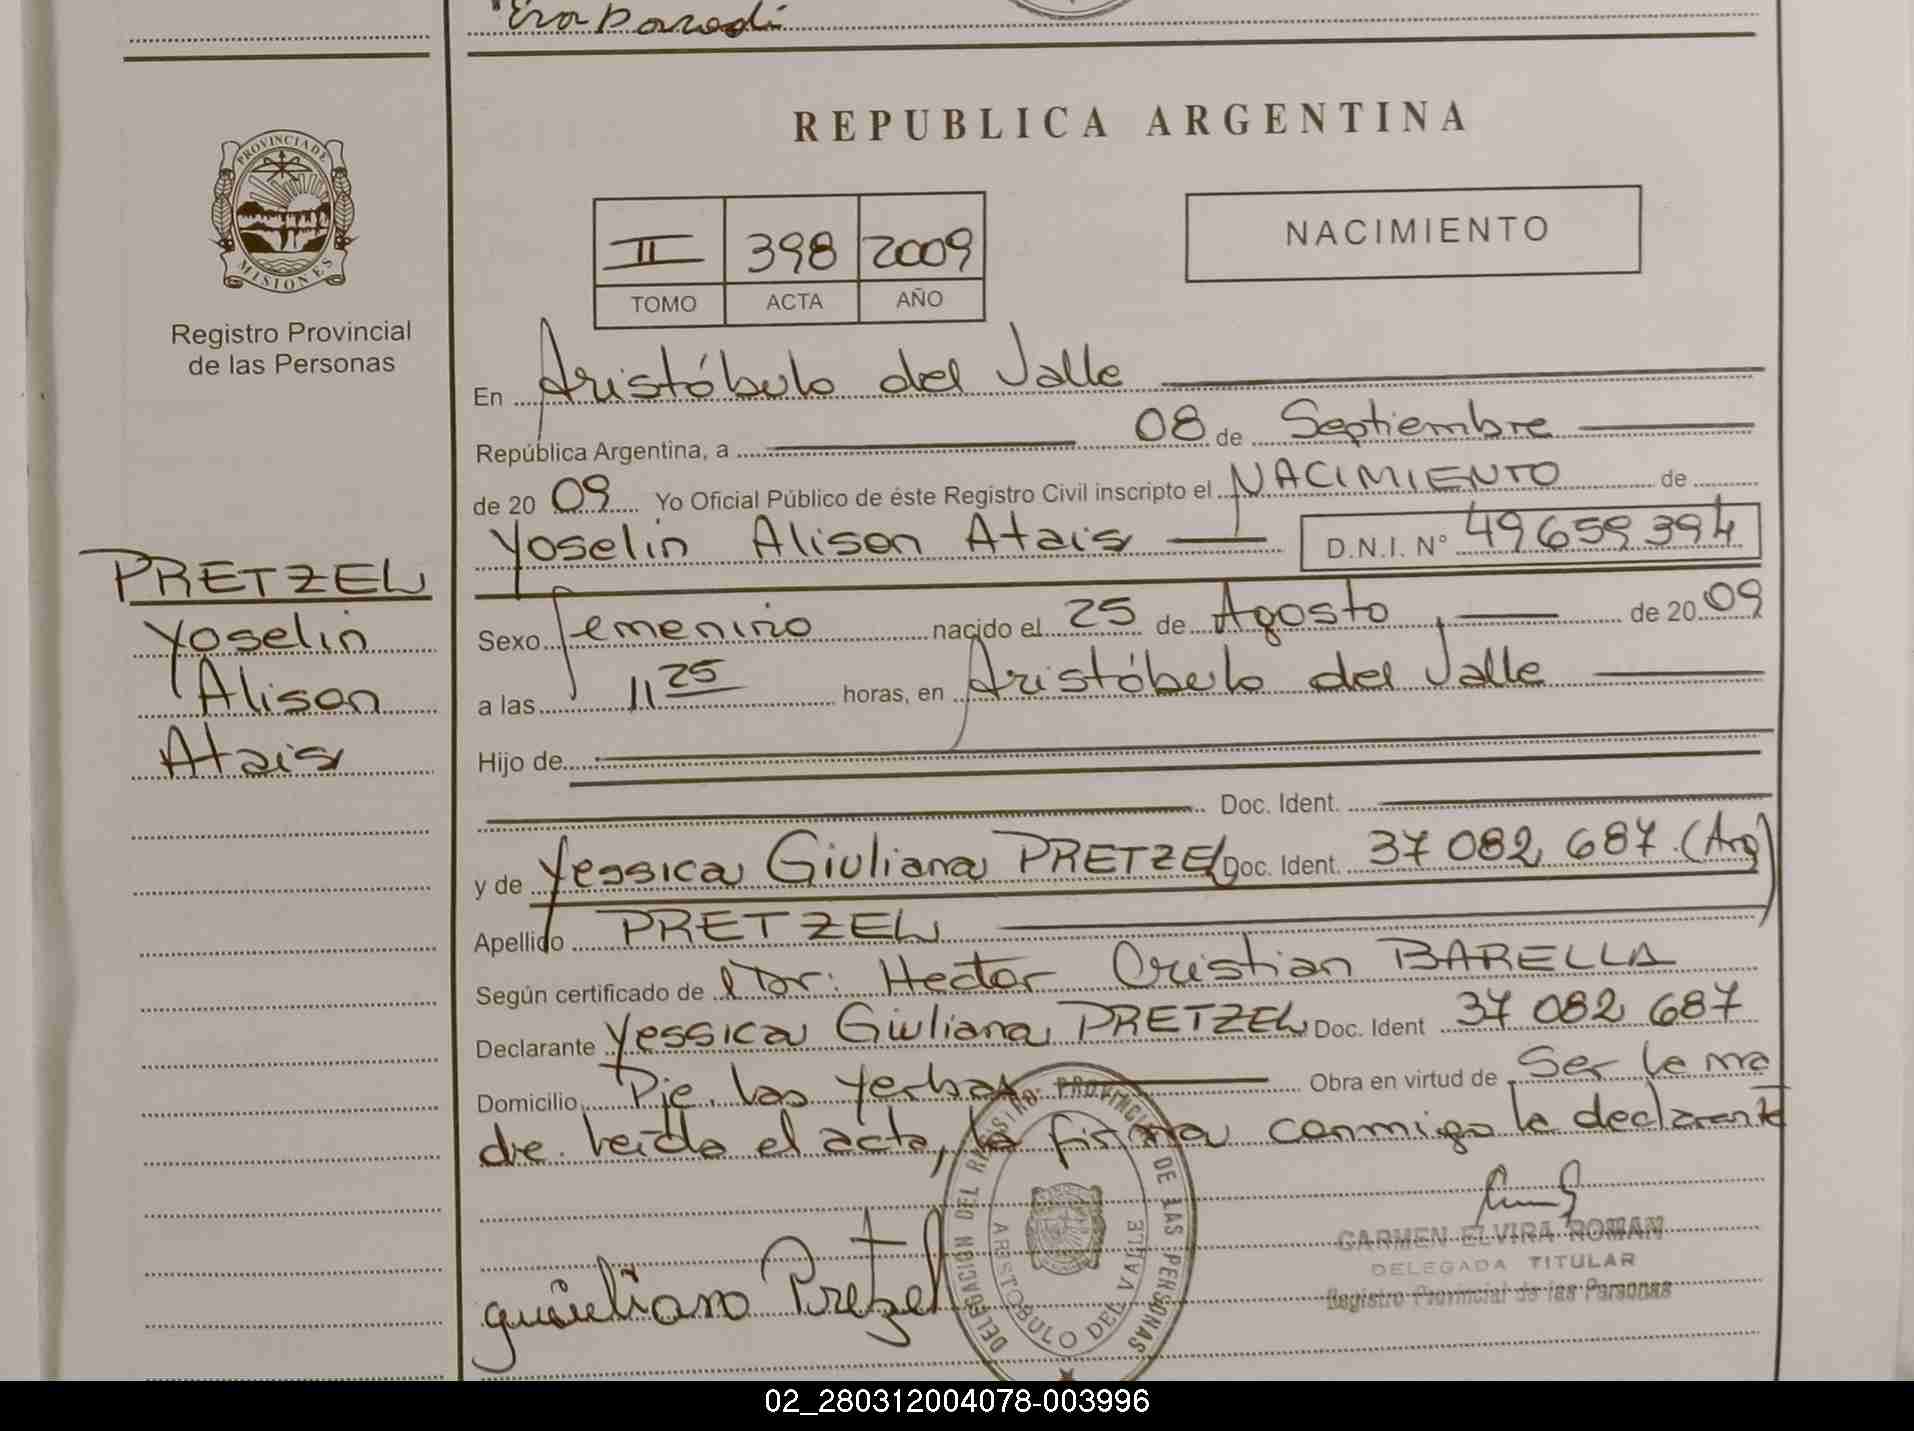 REPUBLICA ARGENTINA
PROVINCIA DE
MISIONES
Registro Provincial
de las Personas
II 398 2009
TOMO ACTA AÑO
NACIMIENTO
En Aristóbulo del Valle
República Argentina, a 08 de Septiembre
de 20 09 Yo Oficial Público de éste Registro Civil inscripto el NACIMIENTO de
Yoselin Alison Atais D.N.I. N° 49659394
PRETZEL
Yoselin
Alison
Atais
Sexo femenino nacido el 25 de Agosto de 20 09
a las 11 25 horas, en Aristóbulo del Valle
Hijo de
Doc. Ident.
y de Yessica Giuliana PRETZEL Doc. Ident. 37 082 687 (Arg)
Apellido PRETZEL
Según certificado de Dr: Hector Cristian BARELLA
Declarante Yessica Giuliana PRETZEL Doc. Ident 37 082 687
Domicilio Pje. las Yerbas Obra en virtud de Ser la ma
dre. leída el acta, la firma conmigo la declarante
DELEGACION DEL REGISTRO PROVINCIAL DE LAS PERSONAS
ARISTOBULO DEL VALLE
CARMEN ELVIRA ROMAN
DELEGADA TITULAR
Registro Provincial de las Personas
02_280312004078-003996